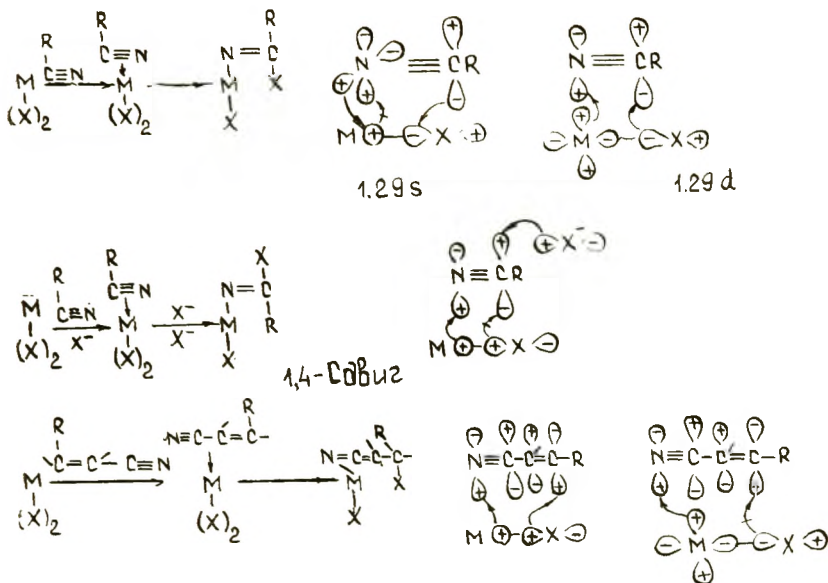 R
C≡N
M
(X)₂
R
C≡N
M
(X)₂
R
N=C
M X
X
N≡CR
M X
1.29s
N≡CR
M X
1.29d
R
C≡N
M
(X)₂
X⁻
R
C≡N
M
(X)₂
X⁻
X⁻
X
N=C
M R
X
N≡CR
X⁻
M X
1,4-Сдвиг
R
C=C-C≡N
M
(X)₂
R
N≡C-C=C-
M
(X)₂
R
N=C=C-C-
M X
X
N≡C-C=C-R
M X
N≡C-C=C-R
M X